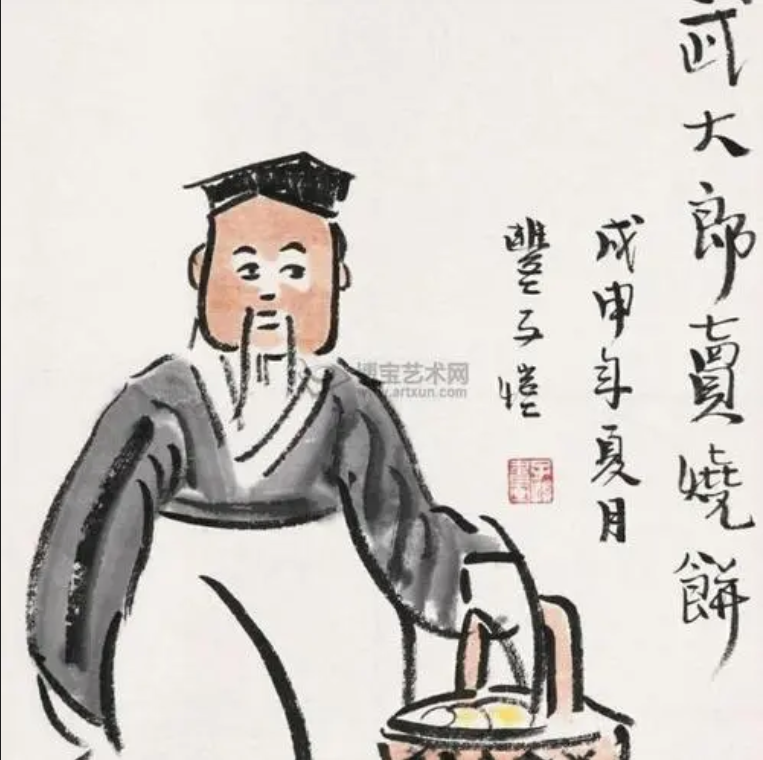 武大郎賣燒餅
戊申年夏月
豐子愷
博宝艺术网
www.artxun.com